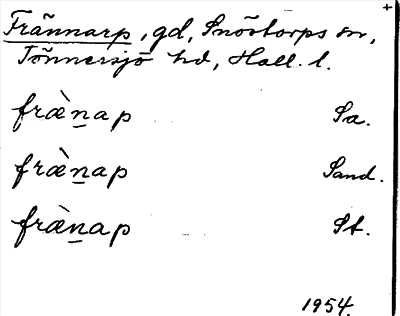 Frännarp, gd, Snöstorps sn,
Tönnersjö hd, Hall. l.
fræ̀n̲ap Sa.
fræ̀n̲ap Sand.
fræ̀n̲ap St.
1954.